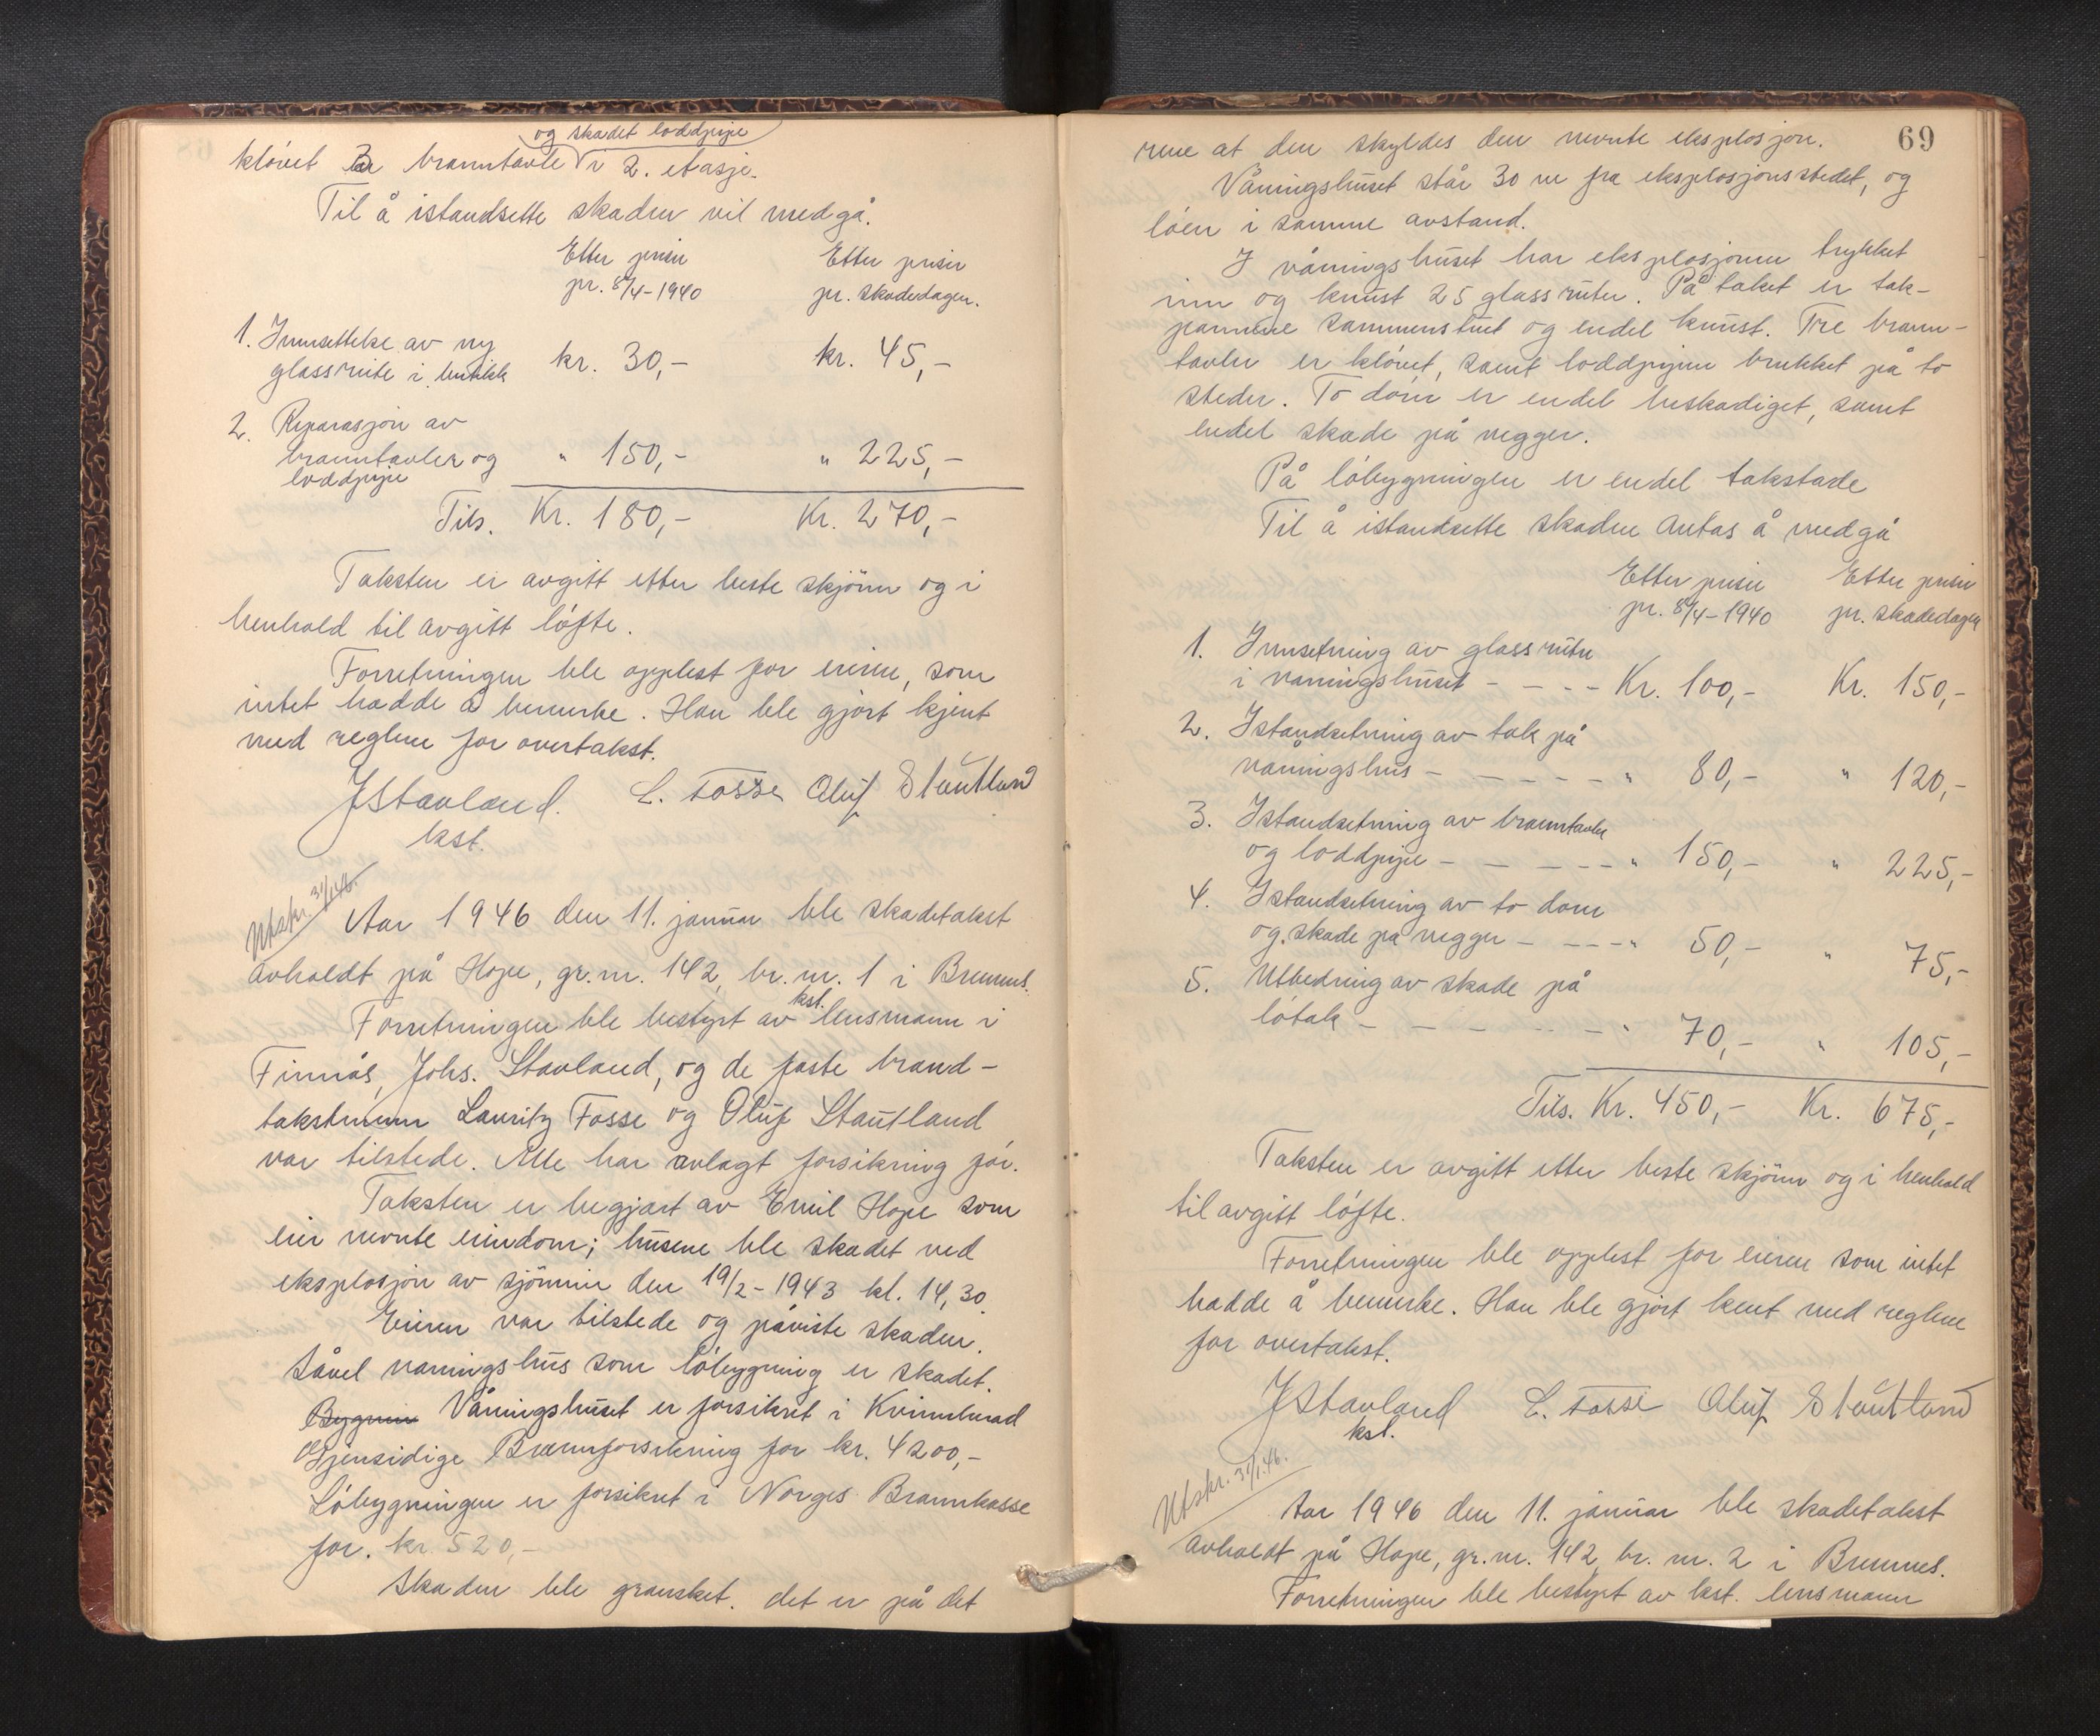 og skadet loddpipe
kløvet 3 branntavle i 2. etasje.
Til å istandsette skaden vil medgå.
Etter priser Etter priser
pr. 8/4-1940 pr. skadedagen.
1. Innsettelse av ny
glassrute i butikk kr. 30,- kr. 45,-
2. Reparasjon av
branntavler og " 150,- " 225,-
loddpipe
Tils. Kr. 180,- Kr. 270,-
Taksten er avgitt etter beste skjönn og i
henhold til avgitt löfte.
Forretningen ble opplest for eieren, som
intet hadde å bemerke. Han ble gjort kjent
med reglene for overtakst.
JStavland. L. Fosse Oluf Stautland
kst.
Utskr. 31/1 46.
Aar 1946 den 11. januar ble skadetakst
avholdt på Hope, gr.nr. 142, br.nr. 1 i Bremnes.
Forretningen ble bestyrt av kst. lensmann i
Finnås, Johs. Stavland, og de faste brand-
takstmenn Lauritz Fosse og Oluf Stautland
var tilstede. Alle har avlagt forsikring för.
Taksten er begjært av Emil Hope som
eier nevnte eiendom; husene ble skadet ved
eksplosjon av sjöminer den 19/2-1943 kl. 14,30.
Eieren var tilstede og påviste skaden.
Såvel våningshus som löbygning er skadet.
Våningshuset er forsikret i Kvinnherad
Gjensidige Brannforsikring for kr. 4200,-
Löbygningen er forsikret i Norges Brannkasse
for. kr 520,-
Skaden ble gransket. det er på det
69
rene at den skyldes den nevnte eksplosjon.
Våningshuset står 30 m fra eksplosjonsstedet, og
löen i samme avstand.
I våningshuset har eksplosjonen trykket
inn og knust 25 glassruter. På taket er tak-
pannene sammenstuet og endel knust. Tre brann-
tavler er klövet, samt loddpipen brukket på to
steder. To dörer er endel beskadiget, samt
endel skade på vegger.
På löbygningen er endel takskade
Til å istandsette skadene antas å medgå
Etter priser Etter priser
pr. 8/4-1940 pr. skadedagen
1. Innsetning av glassruter
i våningshuset - - - - Kr. 100,- Kr. 150,-
2. Istandsetning av tak på
våningshus - - - - - " 80,- " 120,-
3. Istandsetning av branntavler
og loddpipe - - - - - " 150,- " 225,-
4. Istandsetning av to dører
og skade på vegger - - - - " 50,- " 75,-
5. Utbedring av skade på
lötak - - - - - - " 70,- " 105,-
Tils. Kr. 450,- Kr. 675,-
Taksten er avgitt etter beste skjönn og i henhold
til avgitt löfte.
Forretningen ble opplest for eieren som intet
hadde å bemerke. Han ble gjort kent med reglene
for overtakst.
JStavland L. Fosse Oluf Stautland
kst.
Utskr. 31/1.46.
Aar 1946 den 11. januar ble skadetakst
avholdt på Hope, gr.nr. 142, br. nr. 2 i Bremnes.
Forretningen ble bestyrt av kst. lensmann